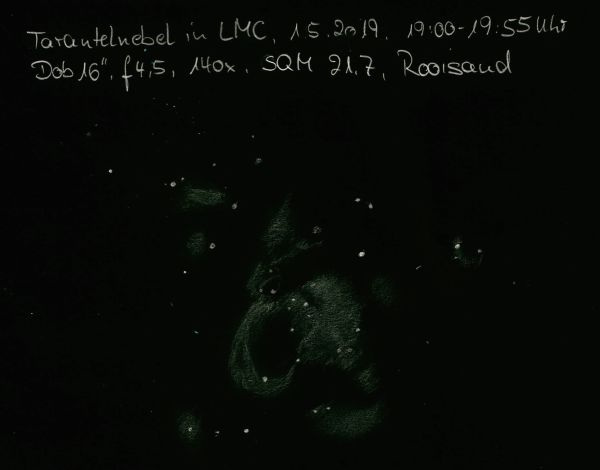 Tarantelnebel in LMC, 1.5.2019, 19:00-19:55 Uhr
Dob 16", f4,5, 140x, SQM 21,7, Rooisand